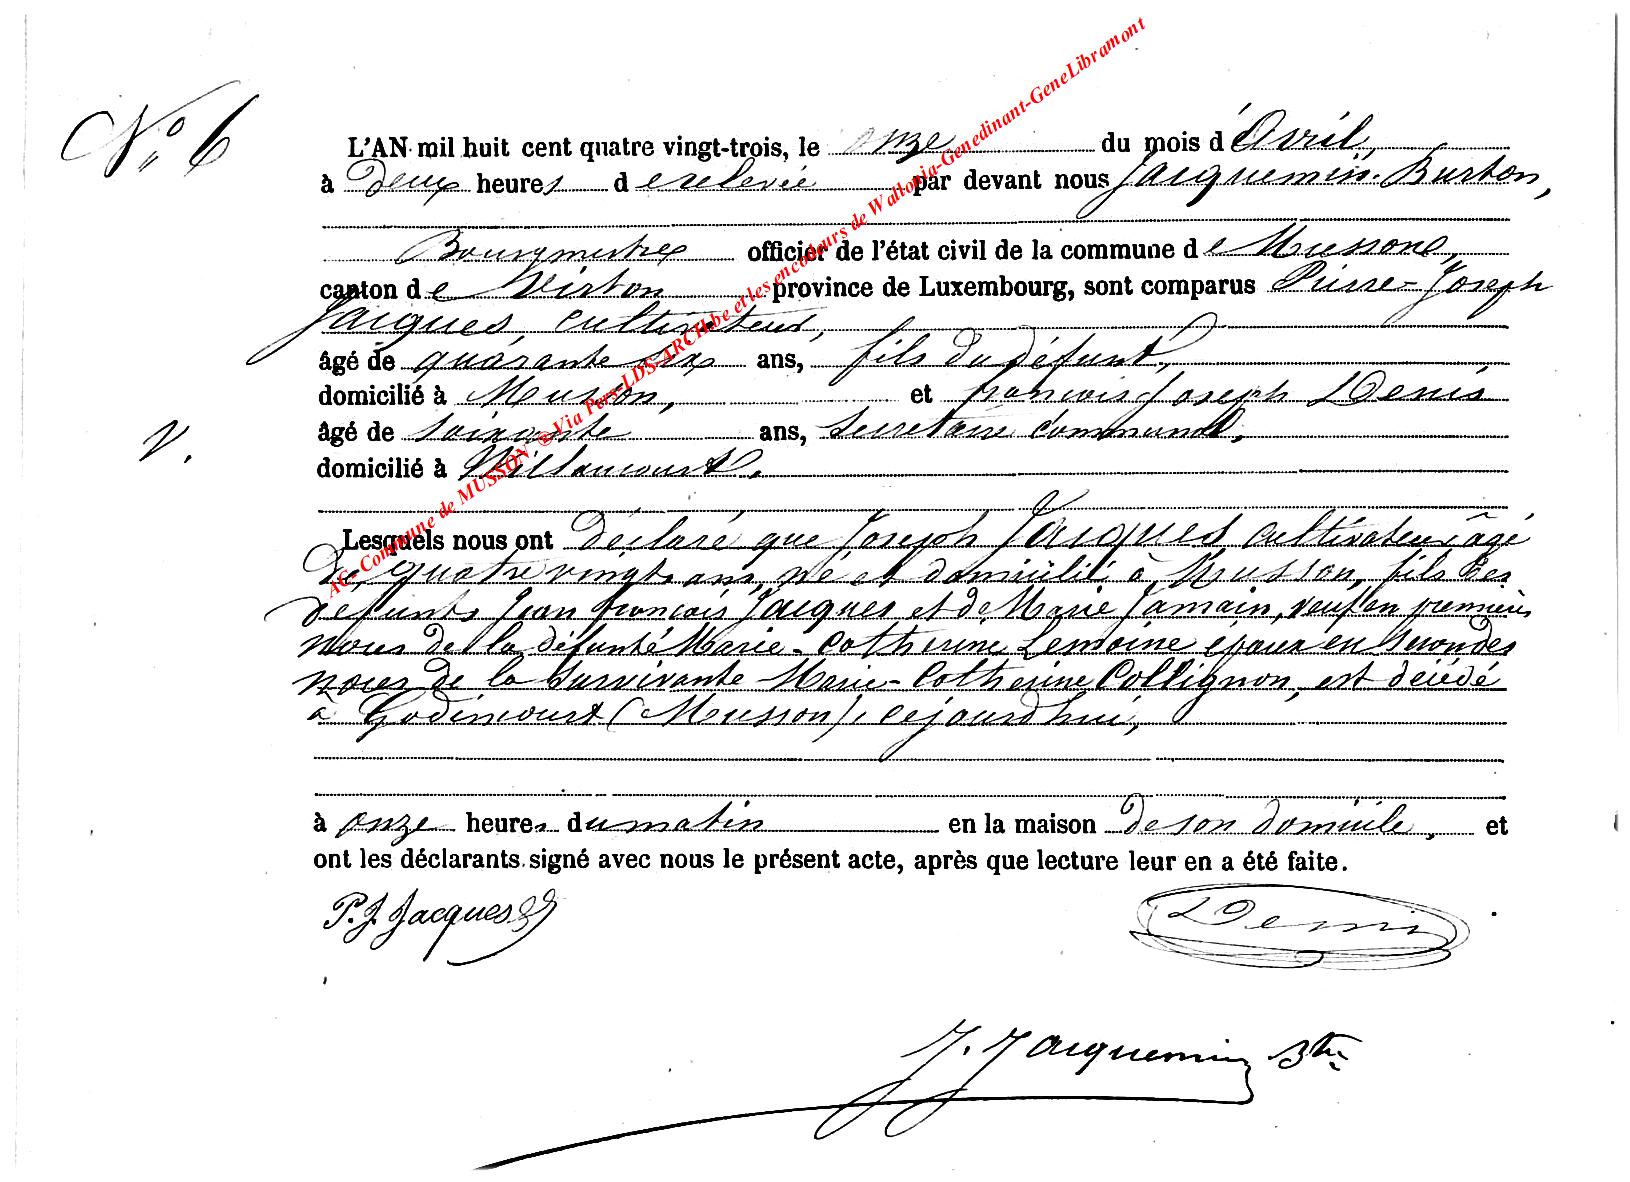 N° 6
L'AN mil huit cent quatre vingt-trois, le onze du mois d'Avril,
à deux heures d e relevée par devant nous Jacquemin-Burton,
Bourgmestre officier de l'état civil de la commune d e Musson,
canton d e Virton province de Luxembourg, sont comparus Pierre-Joseph
Jacques, cultivateur,
âgé de quarante six ans, fils du défunt,
domicilié à Musson, et françois Joseph Denis
âgé de soixante ans, secrétaire communal,
V.
domicilié à Willancourt.
Lesquels nous ont déclaré que Joseph Jacques cultivateur âgé
de quatre vingts ans, né et domicilié à Musson, fils des
défunts Jean françois Jacques et de Marie Jamain, veuf en premières
noces de la défunte Marie-Catherine Lemoine époux en secondes
noces de la survivante Marie-Catherine Collignon, est décédé
à Godincourt (Musson), cejourd'hui,
à onze heures du matin en la maison de son domicile, et
ont les déclarants signé avec nous le présent acte, après que lecture leur en a été faite.
P. J. Jacques
Denis
J. Jacquemin Btn
AC- Commune de MUSSON ® Via Pers-LDS-ARCH.be et les encodeurs de Wallonia-Genedinant-GeneLibramont